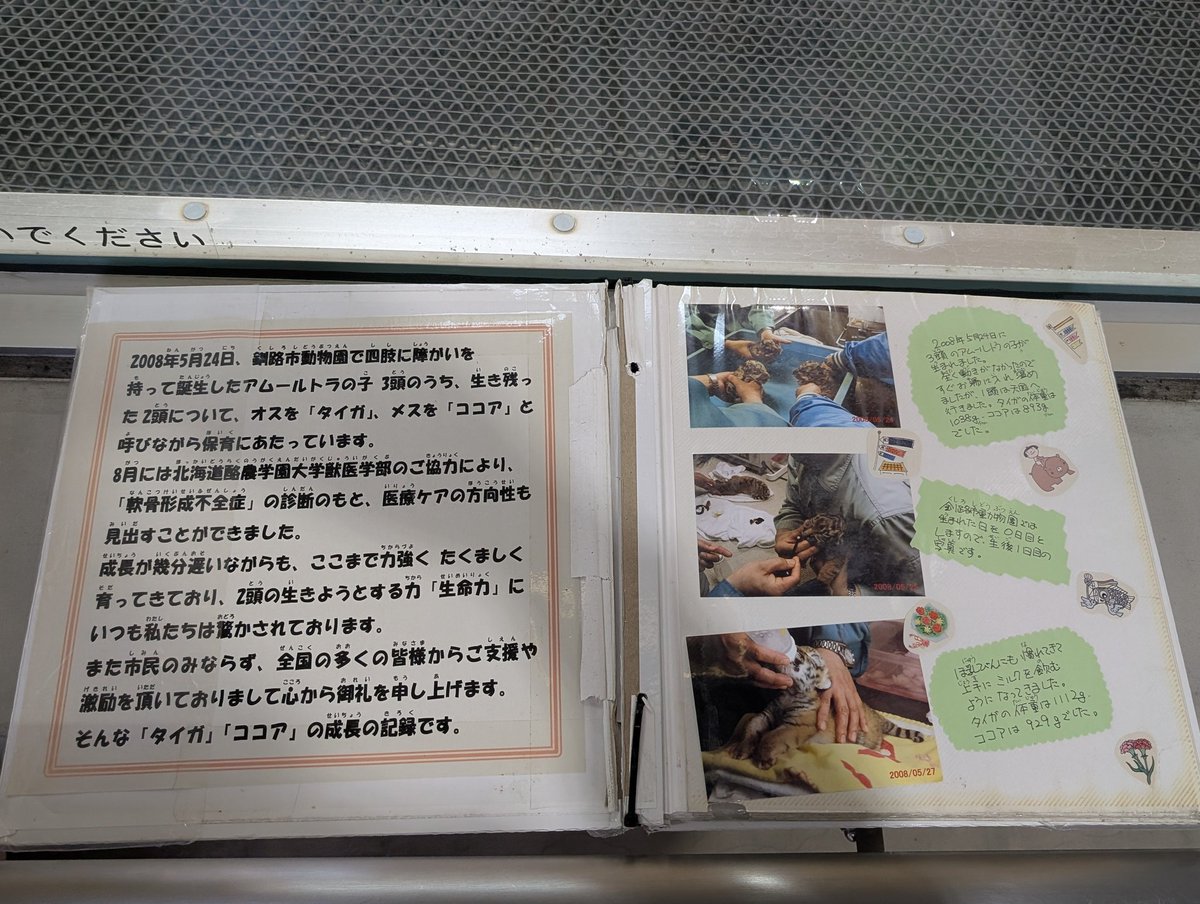 いでください
2008年5月24日、釧路市動物園で四肢に障がいを
持って誕生したアムールトラの子 3頭のうち、生き残っ
た 2頭について、オスを「タイガ」、メスを「ココア」と
呼びながら保育にあたっています。
8月には北海道酪農学園大学獣医学部のご協力により、
「軟骨形成不全症」の診断のもと、医療ケアの方向性も
見出すことができました。
成長が幾分遅いながらも、ここまで力強く たくましく
育ってきており、2頭の生きようとする力「生命力」に
いつも私たちは驚かされております。
また市民のみならず、全国の多くの皆様からご支援や
激励を頂いておりまして心から御礼を申し上げます。
そんな「タイガ」「ココア」の成長の記録です。
2008/05/24
2008年5月24日に
3頭のアムールトラの子が
生まれました。
全く動きがなかったので
すぐお湯に入れ温め
ましたが、1頭は天国へ
行きました。タイガの体重は
1038g、ココアは893g
でした。
2008/05/25
釧路市動物園では
生まれた日を0日目と
しますので、生後1日目の
写真です。
2008/05/27
ほ乳びんにも慣れてきて
上手にミルクを飲む
ようになってきました。
タイガの体重は1112g、
ココアは929gでした。